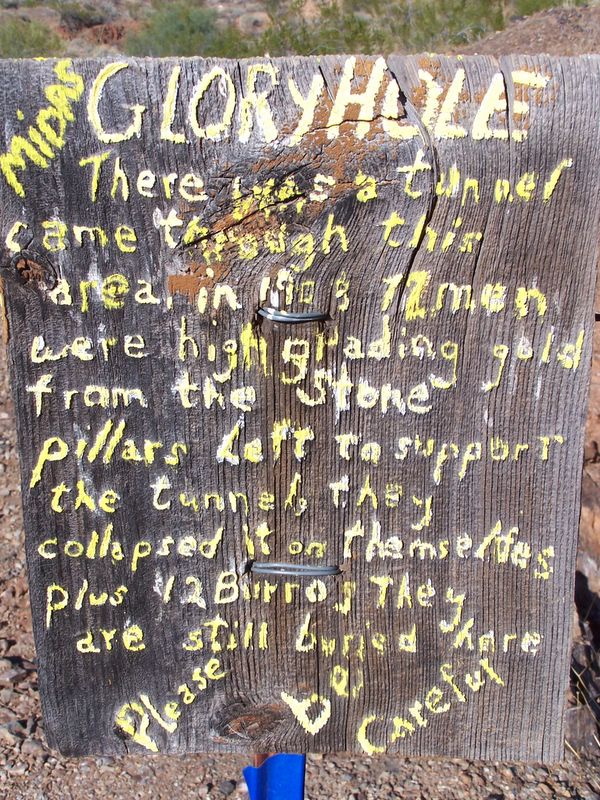 MiDAS
GLORYHOLE
There was a tunnel
came through this
area. in 1908 12 men
were high grading gold
from the stone
pillars Left to support
the tunnel, they
collapsed it on themselfes
plus 12 Burros They
are still buried here
Please be Careful